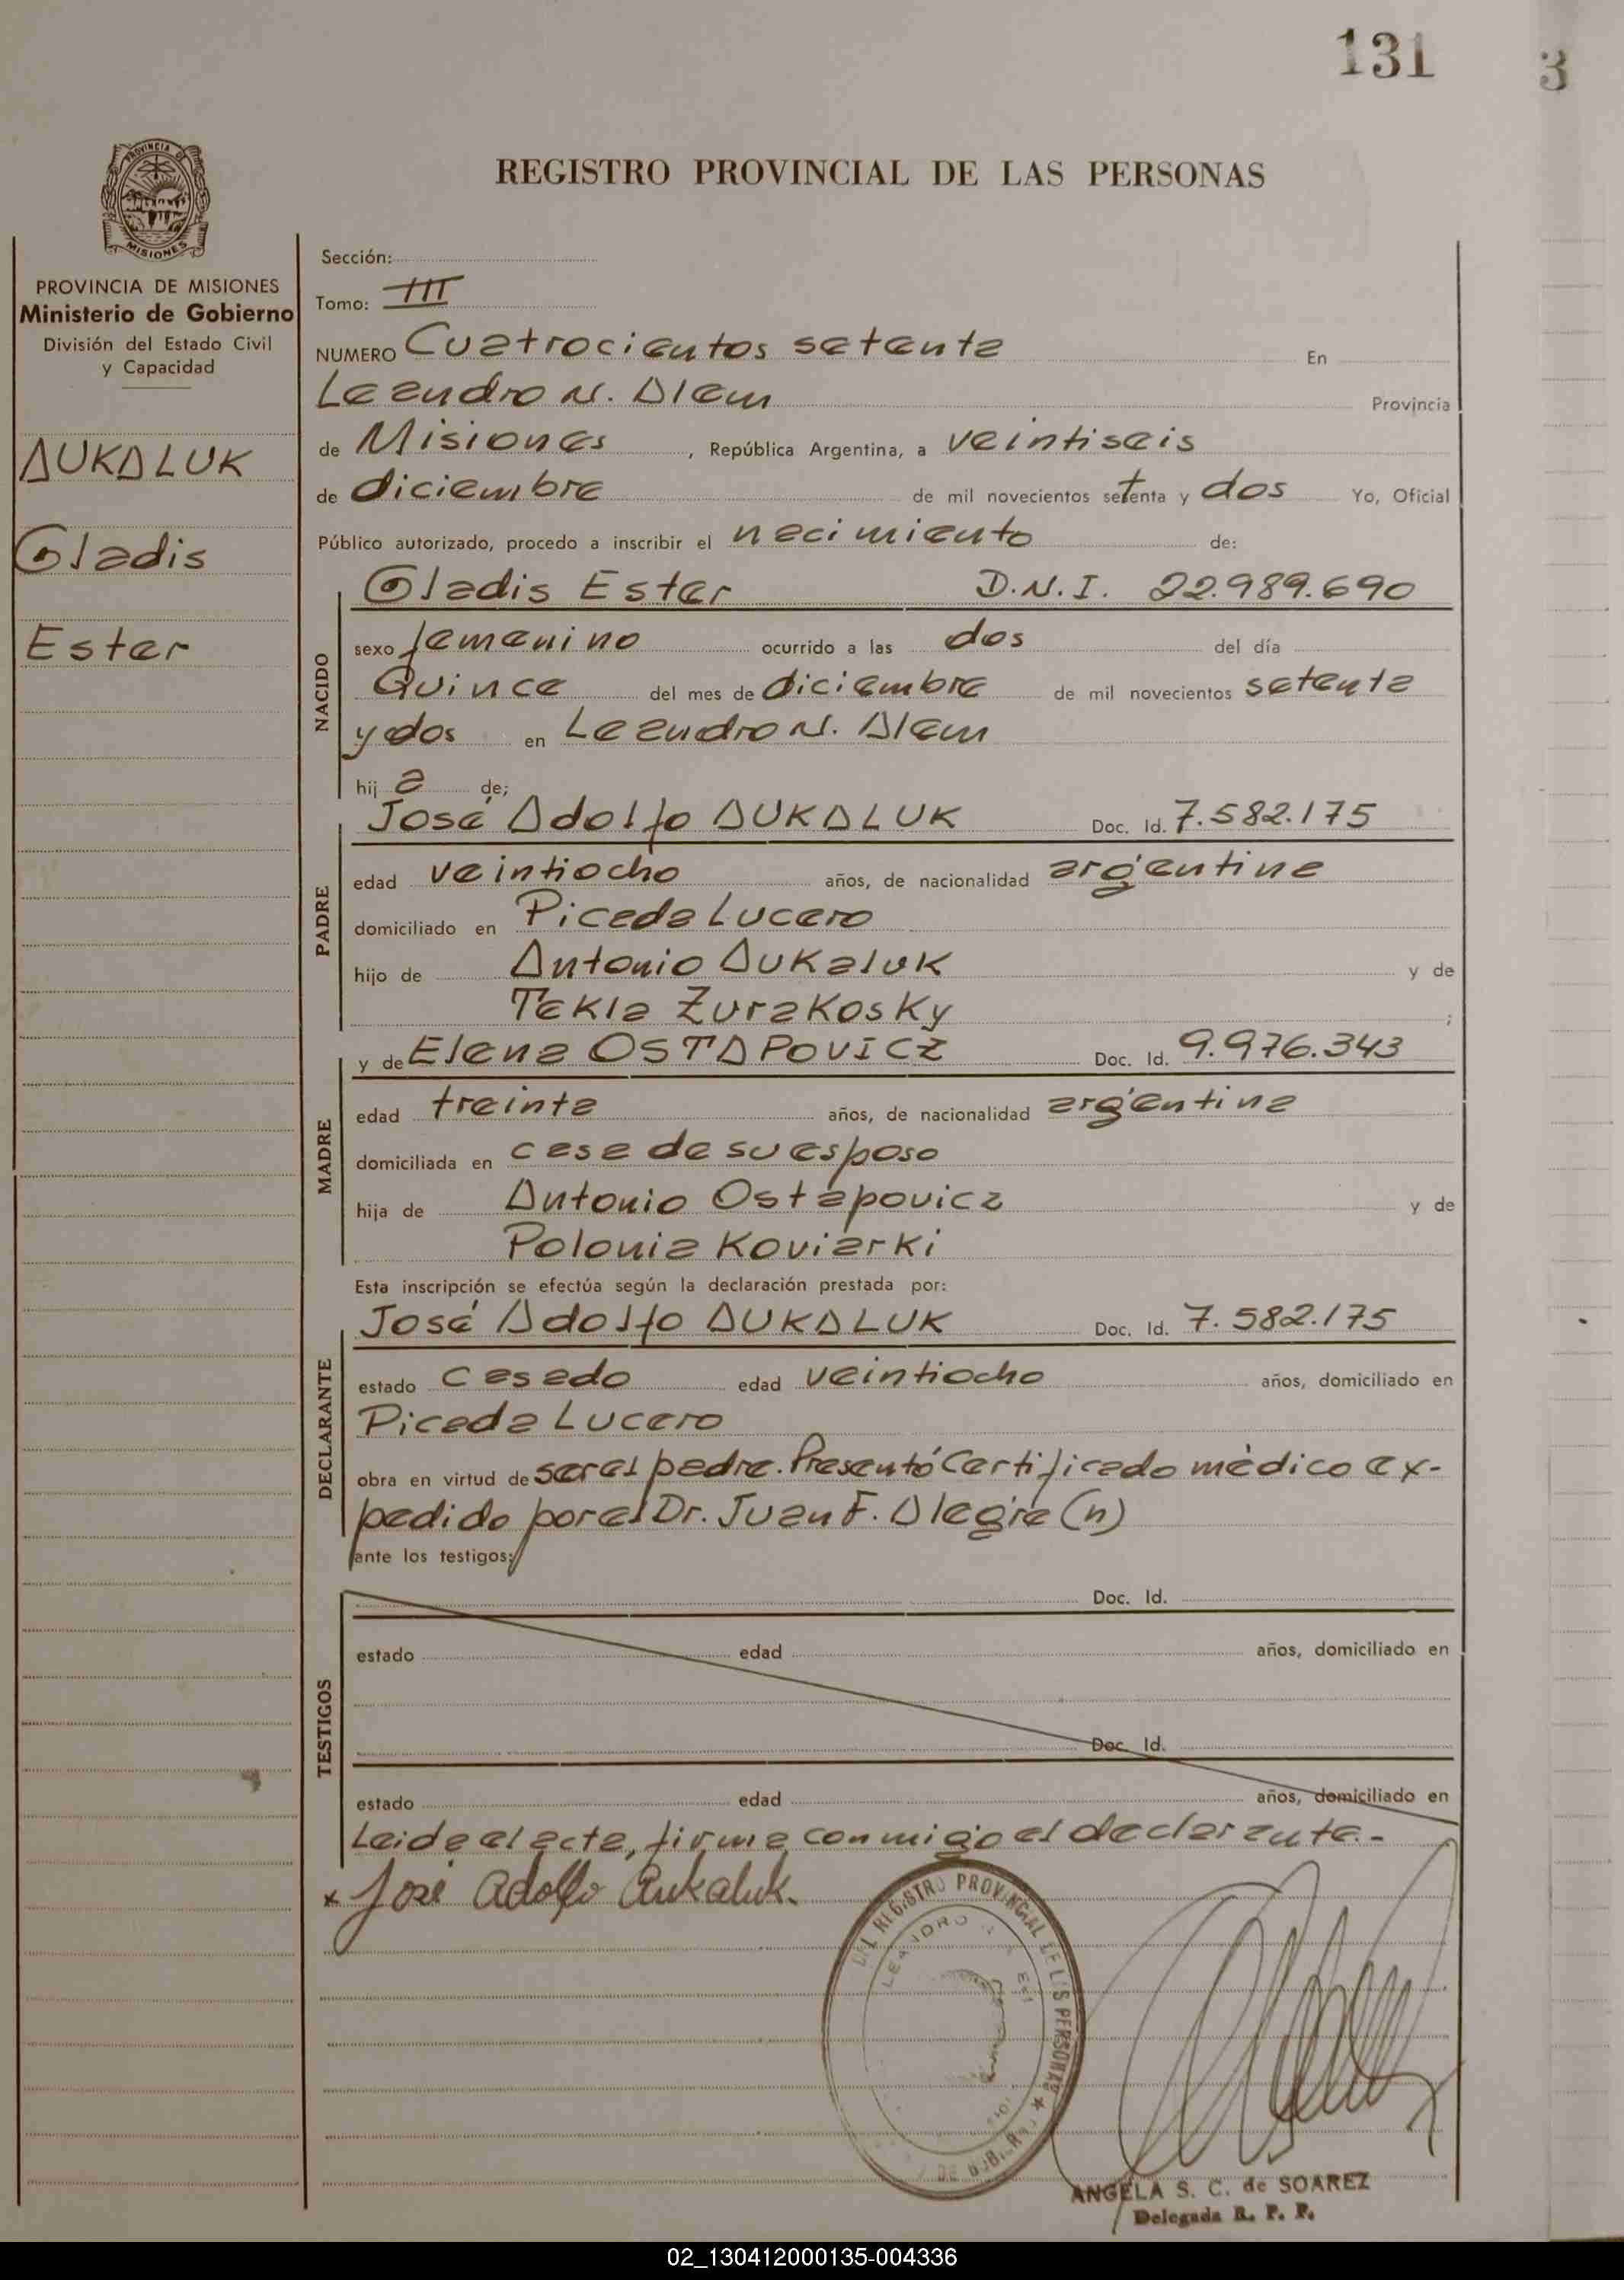 131
3
PROVINCIA DE
MISIONES
REGISTRO PROVINCIAL DE LAS PERSONAS
PROVINCIA DE MISIONES
Ministerio de Gobierno
División del Estado Civil
y Capacidad
AUKALUK
Gladis
Ester
Sección:
Tomo: III
NUMERO Cuatrocientos setenta En
Leandro N. Alem Provincia
de Misiones, República Argentina, a veintiseis
de diciembre de mil novecientos setenta y dos Yo, Oficial
Público autorizado, procedo a inscribir el nacimiento de:
Gladis Ester D.N.I. 22.989.690
NACIDO
sexo femenino ocurrido a las dos del día
Quince del mes de diciembre de mil novecientos setenta
y dos en Leandro N. Alem
hij a de;
José Adolfo AUKALUK Doc. Id. 7.582.175
PADRE
edad veintiocho años, de nacionalidad argentina
domiciliado en Picada Lucero
hijo de Antonio Aukaluk y de
Tekla Zurakosky ;
y de Elena OSTAPOVICZ Doc. Id. 9.976.343
MADRE
edad treinta años, de nacionalidad argentina
domiciliada en casa de su esposo
hija de Antonio Ostapovicz y de
Polonia Koviarki
Esta inscripción se efectúa según la declaración prestada por:
José Adolfo AUKALUK Doc. Id. 7.582.175
DECLARANTE
estado casado edad veintiocho años, domiciliado en
Picada Lucero
obra en virtud de ser el padre. Presentó Certificado médico ex-
pedido por el Dr. Juan F. Alegre (n)
ante los testigos;
TESTIGOS
Doc. Id.
estado edad años, domiciliado en
Doc. Id.
estado edad años, domiciliado en
Leida el acta, firma conmigo el declarante.-
x José Adolfo Aukaluk.
DEL REGISTRO PROVINCIAL DE LAS PERSONAS
LEANDRO N.
ANGELA S. C. de SOAREZ
Delegada R. P. P.
02_130412000135-004336